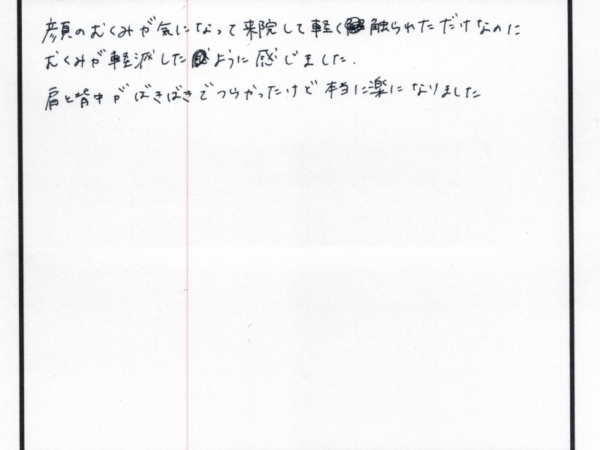 顔のむくみが気になって来院して軽く触られただけなのに
むくみが軽減したように感じました.
肩と背中がばきばきでつらかったけど本当に楽になりました